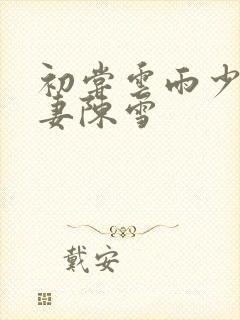 初尝雲雨少
妻陳雪
戴安